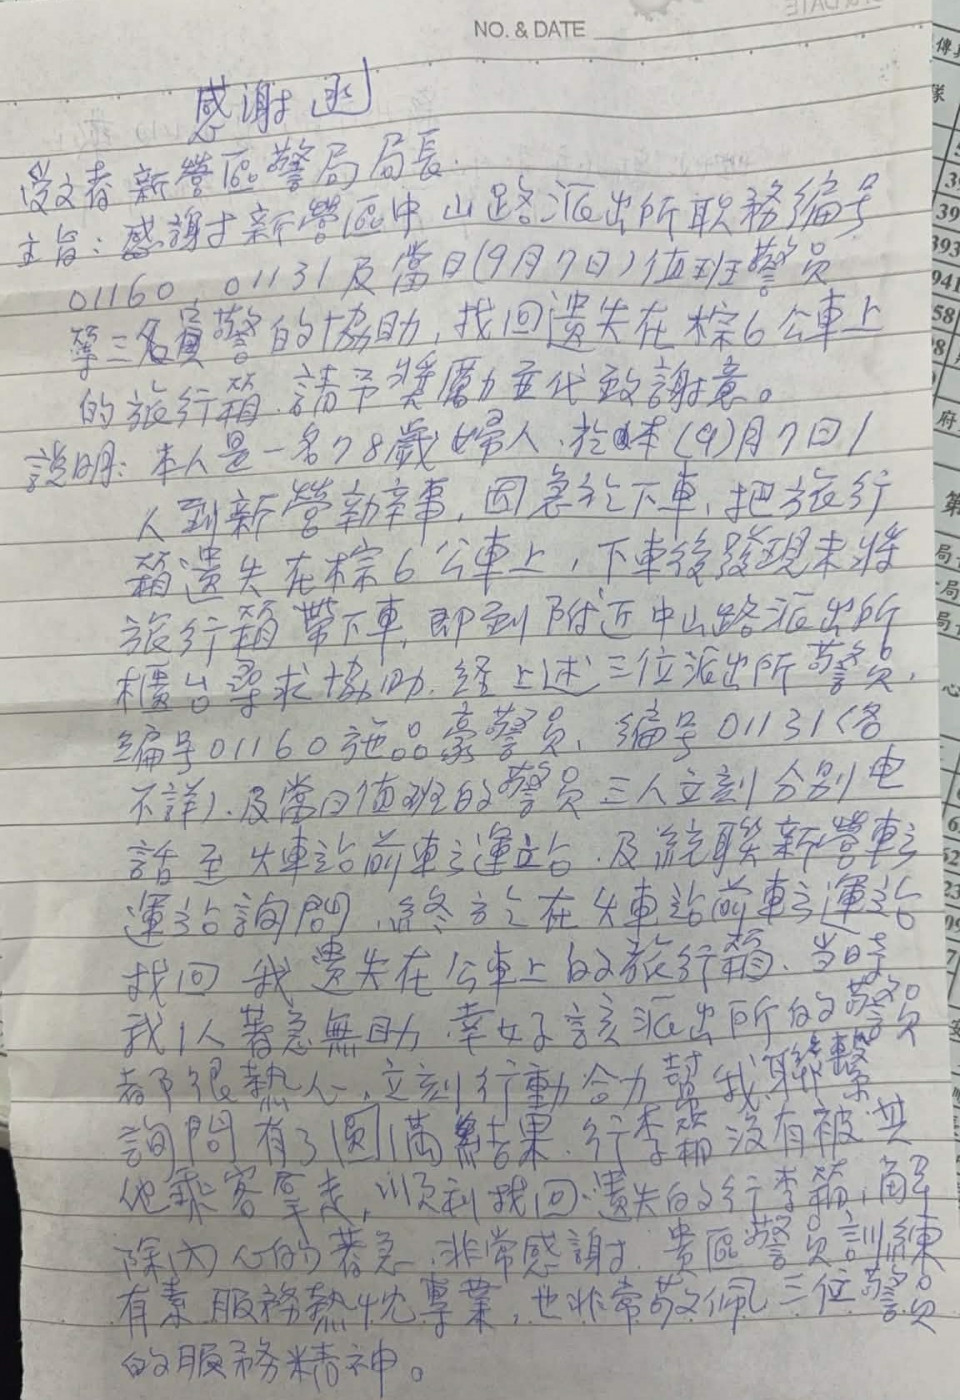 NO. & DATE
感謝函
受文者新營區警局局長.
主旨:感謝新營區中山路派出所职務編号
01160、01131及當日(9月7日)值班警員
等三名員警的協助,找回遺失在棕6公車上
的旅行箱.請予獎勵並代致謝意。
說明:本人是一名78歲婦人.於本(9)月7日1
人到新營辦事,因急於下車,把旅行
箱遺失在棕6公車上,下車後發現未將
旅行箱帶下車,即到附近中山路派出所
櫃台尋求協助.經上述三位派出所警員,
編号01160施品豪警員、編号01131(名
不詳)、及當日值班的警員三人立刻分別电
話至火車站前車運站.及統聯新營車
運站詢問,終於在火車站前車運站
找回我遺失在公車上的旅行箱.当時
我1人著急無助.幸好該派出所的警員
都很熱心,立刻行動合力幫我聯繫
詢問有了圓滿結果.行李箱没有被其
他乘客拿走,順利找回遺失的行李箱,解
除內心的著急.非常感謝.貴區警員訓練
有素服務熱忱專業,也非常敬佩三位警員
的服務精神。